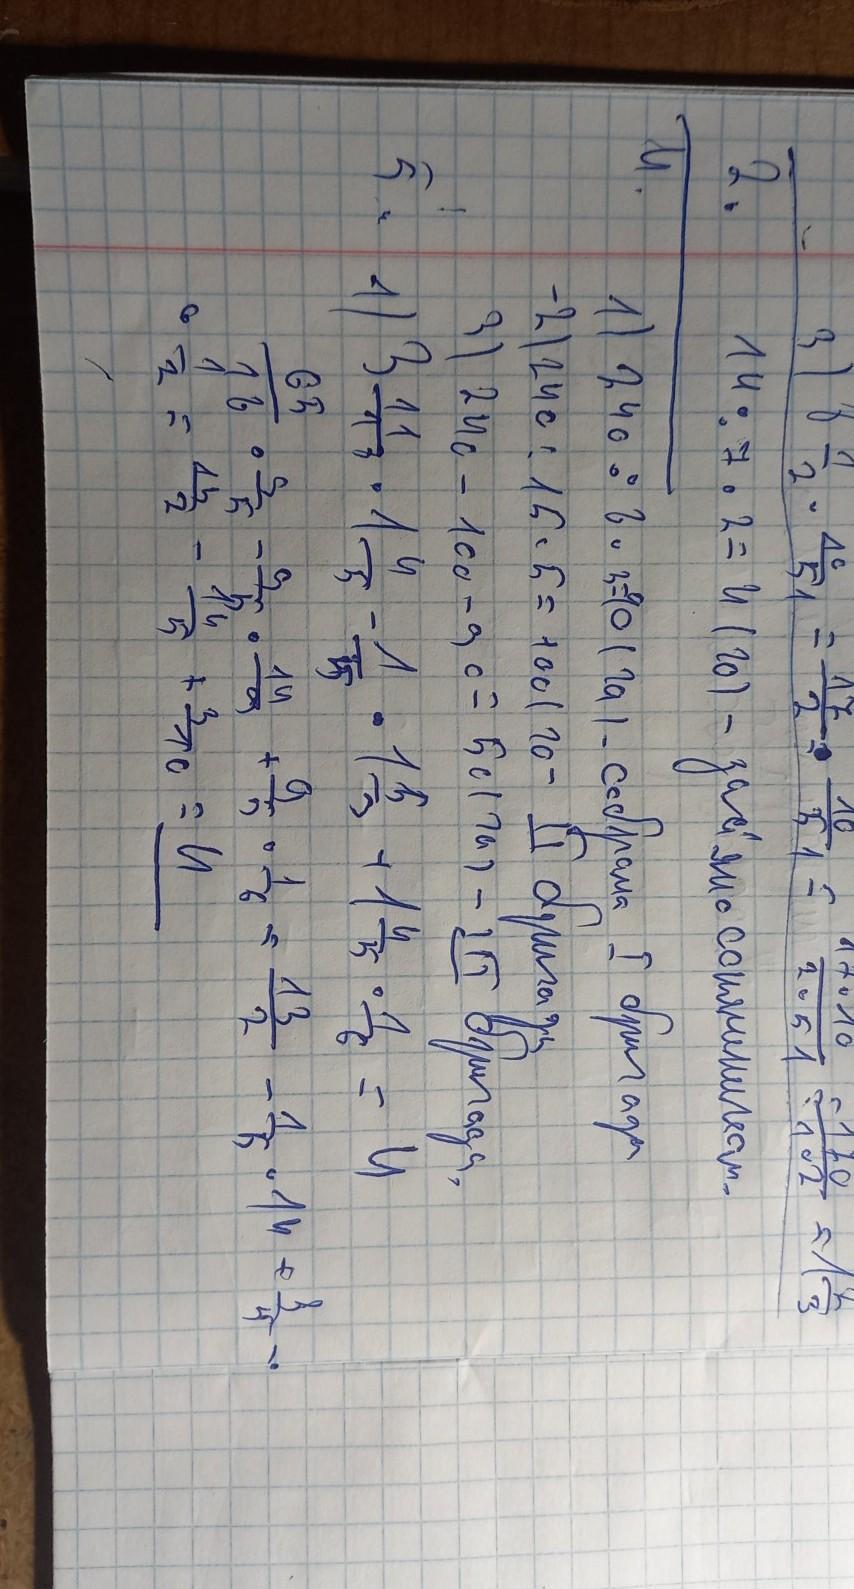 3) 8 1/2 · 10/51 = 17/2 · 10/51 = 17·10/2·51 = 170/102 = 1 2/3
2. 14 : 7 · 2 = 4 (га) - займе
4. 1) 240 : 8 · 3 = 90 (га) - собрала I бригада
2) 240 : 15 · 5 = 100 (га - II бригада
3) 240 - 100 - 90 = 50 (га) - III бригада,
5. 1) 3 11/18 · 1 4/5 - 1/15 · 1 5/9 + 1 4/5 · 1/6 = 4
65/18 · 9/5 - · 14/9 + 9/5 · 1/6 = 13/2 - 1/5 · 14 + 3/5 ·
· 1/2 = 13/2 - 14/5 + 3/10 = 4